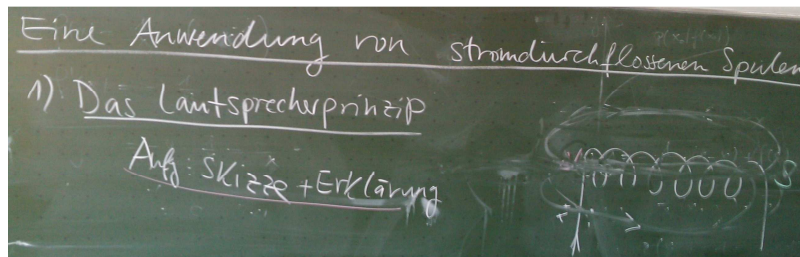 Eine Anwendung von stromdurchflossenen Spulen
1) Das Lautsprecherprinzip
Aufg: Skizze + Erklärung
S